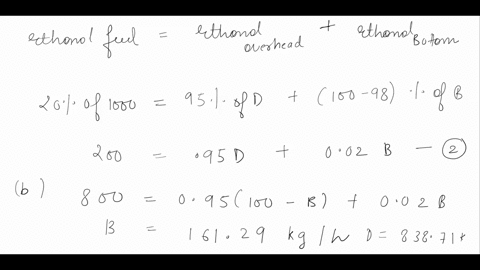 ethanol feed = ethanol overhead + ethanol Bottom
20% of 1000 = 95% of D + (100-98) % of B
200 = .95D + 0.02 B — ②
(b) 800 = 0.95(100 - B) + 0.02 B
B = 161.29 kg/h D = 838.71